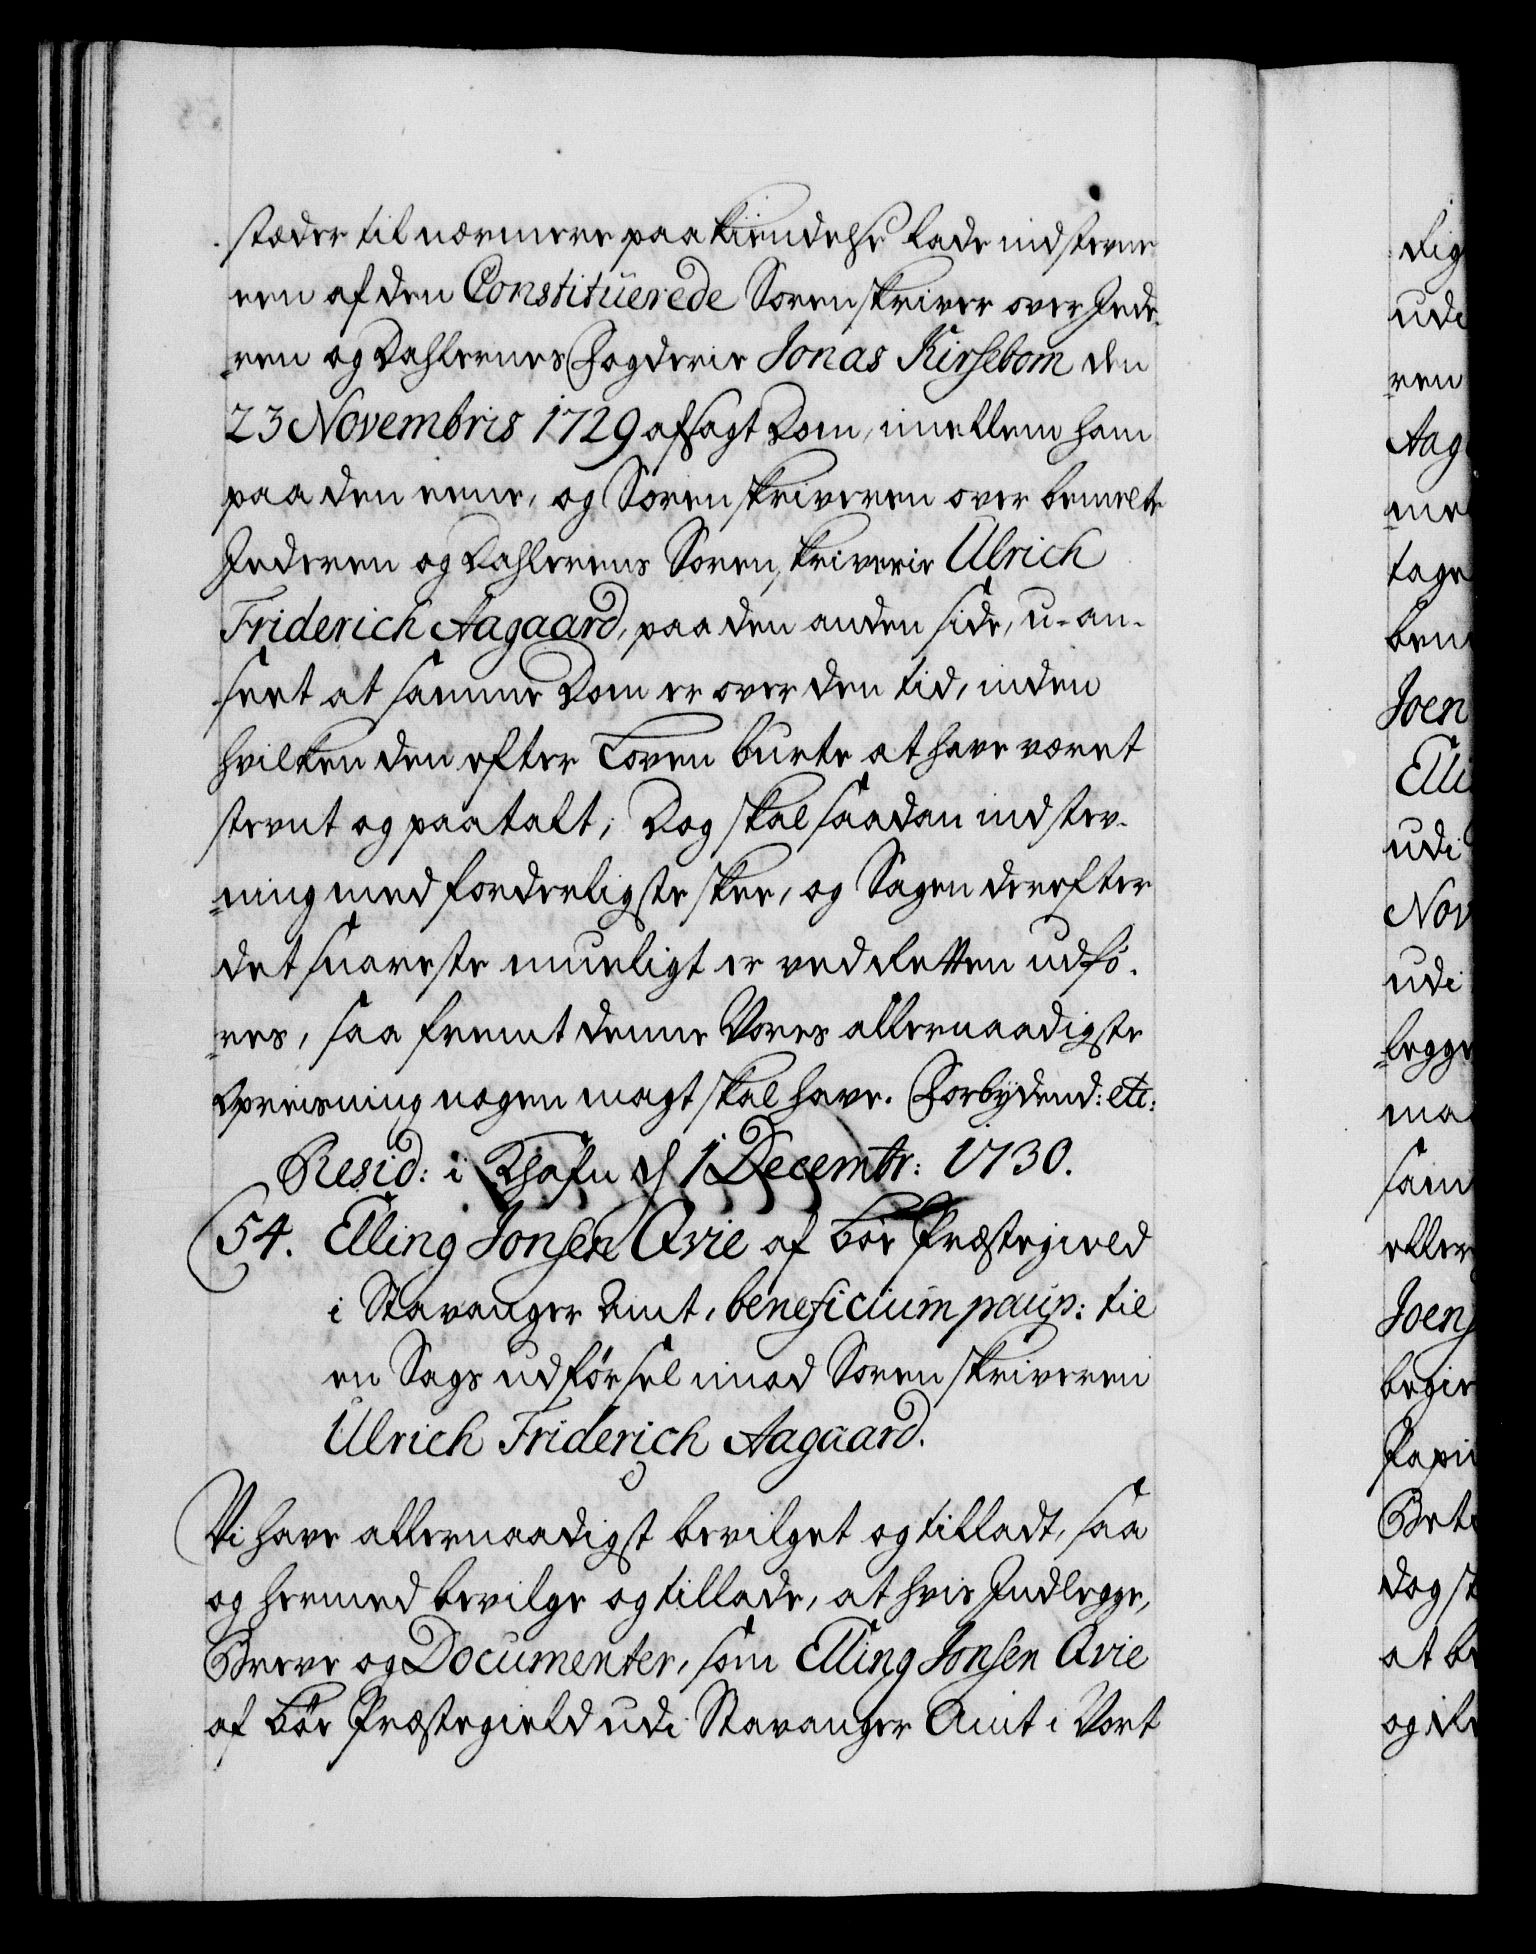 stæder til nærmere paakiendelse lade indstevne
een af den Constituerede Sorenskriver over Jede-
ren og Dahlernes Fogderie Jonas Kirsebom den
23 Novembris 1729 afsagt Dom, imellem ham
paa den eene, og Sorenskriveren over bemelte
Jederen og Dahlerens Sorenskriverie Ulrich
Friderich Aagaard, paa den anden side, u-an-
seet at samme Dom er over den tid, inden
hvilken den efter Loven burte at have været
stevnt og paatalt; Dog skal saadan indstev-
ning med forderligste skee, og Sagen derefter
det snareste mueligt er ved Retten udfö-
res, saa fremt denne Vores allernaadigste
Opreisning nogen magt skal have. Forbydend: etc:
Resid: i Khafn d 1 Decembr: 1730.
54. Elling Jonsen Qvie af Böe Præstegield
i Stavanger Amt, beneficium paup: til
en Sags udförsel imod Sorenskriveren
Ulrich Friderich Aagaard.
Vi have allernaadigst bevilget og tilladt, saa
og hermed bevilge og tillade, at hvis Indlegge,
Breve og Documenter, som Elling Jonsen Qvie
af Böe Præstegield udi Stavanger Amt i Vort
udi
ren
Aag
tage
Joen
Elli
udi
Nov
udi
legge
sam
eller
Joens
dog st
at be